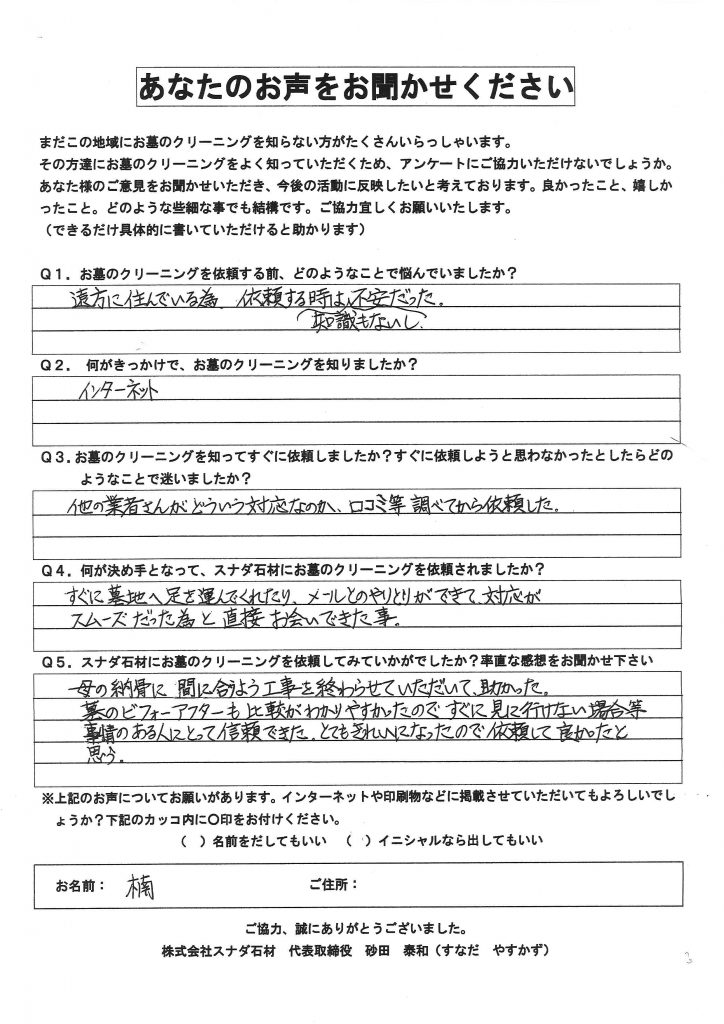 あなたのお声をお聞かせください
まだこの地域にお墓のクリーニングを知らない方がたくさんいらっしゃいます。
その方達にお墓のクリーニングをよく知っていただくため、アンケートにご協力いただけないでしょうか。
あなた様のご意見をお聞かせいただき、今後の活動に反映したいと考えております。良かったこと、嬉しか
ったこと。どのような些細な事でも結構です。ご協力宜しくお願いいたします。
（できるだけ具体的に書いていただけると助かります）
Q１．お墓のクリーニングを依頼する前、どのようなことで悩んでいましたか？
遠方に住んでいる為、依頼する時は、不安だった。
知識もないし、
Q２．　何がきっかけで、お墓のクリーニングを知りましたか？
インターネット
Q３．お墓のクリーニングを知ってすぐに依頼しましたか？すぐに依頼しようと思わなかったとしたらどの
ようなことで迷いましたか？
他の業者さんがどういう対応なのか、口コミ等調べてから依頼した。
Q４．何が決め手となって、スナダ石材にお墓のクリーニングを依頼されましたか？
すぐに墓地へ足を運んでくれたり、メールとのやりとりができて、対応が
スムーズだった為と直接お会いできた事。
Q５．スナダ石材にお墓のクリーニングを依頼してみていかがでしたか？率直な感想をお聞かせ下さい
母の納骨に間に合うよう工事を終わらせていただいて、助かった。
墓のビフォーアフターも比較がわかりやすかったのですぐに見に行けない場合等
事情のある人にとって信頼できた。とてもきれいになったので依頼して良かったと
思う。
※上記のお声についてお願いがあります。インターネットや印刷物などに掲載させていただいてもよろしいでし
ょうか？下記のカッコ内に〇印をお付けください。
（　）名前をだしてもいい　（　）イニシャルなら出してもいい
お名前：　楠　ご住所：
ご協力、誠にありがとうございました。
株式会社スナダ石材　代表取締役　砂田　泰和（すなだ　やすかず）